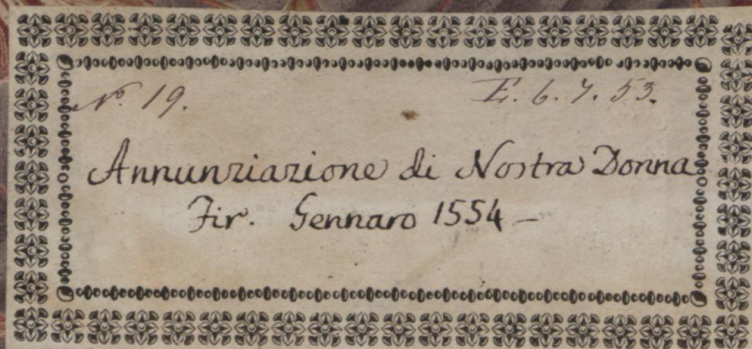 N.º 19. E. 6. 7. 53.
Annunziazione di Nostra Donna
Fir. Gennaro 1554 –